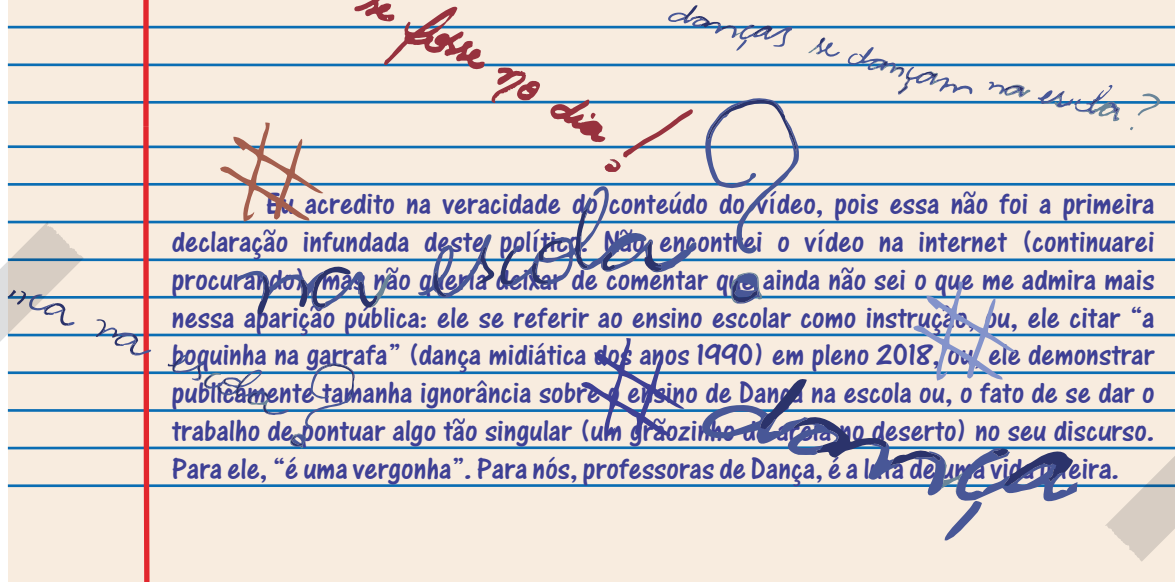 se fosse no dia!
danças se dançam na escola?
#
Eu acredito na veracidade do conteúdo do vídeo, pois essa não foi a primeira
declaração infundada deste político. Não encontrei o vídeo na internet (continuarei
procurando) mas não queria deixar de comentar que ainda não sei o que me admira mais
nessa aparição pública: ele se referir ao ensino escolar como instrução, ou, ele citar “a
boquinha na garrafa” (dança midiática dos anos 1990) em pleno 2018, ou, ele demonstrar
publicamente tamanha ignorância sobre o ensino de Dança na escola ou, o fato de se dar o
trabalho de pontuar algo tão singular (um grãozinho de areia no deserto) no seu discurso.
Para ele, “é uma vergonha”. Para nós, professoras de Dança, é a luta de uma vida inteira.
escola?
#
nça na
escola?
#
dança